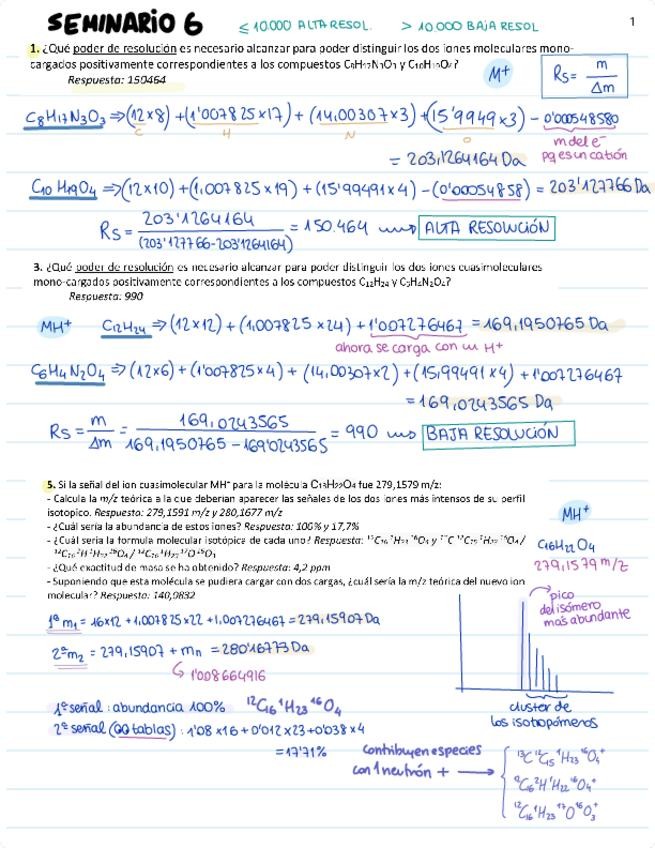 SEMINARIO 6 ≤ 10.000 ALTA RESOL. > 10.000 BAJA RESOL 1
1. ¿Qué poder de resolución es necesario alcanzar para poder distinguir los dos iones moleculares mono-
cargados positivamente correspondientes a los compuestos C₈H₁₇N₃O₃ y C₁₀H₁₉O₄?
Respuesta: 150464
M⁺ Rs = m / Δm
C₈H₁₇N₃O₃ ⇒ (12×8) + (1'007825×17) + (14,00307×3) + (15'9949×3) − 0'000548580
C H N O m del e⁻
= 203,1264164 Da pq es un catión
C₁₀H₁₉O₄ ⇒ (12×10) + (1,007825×19) + (15'99491×4) − (0'00054858) = 203'127766 Da
Rs = 203'1264164 / (203'127766-203'1264164) = 150.464 ⟿ ALTA RESOLUCIÓN
3. ¿Qué poder de resolución es necesario alcanzar para poder distinguir los dos iones cuasimoleculares
mono-cargados positivamente correspondientes a los compuestos C₁₂H₂₄ y C₆H₄N₂O₄?
Respuesta: 990
MH⁺ C₁₂H₂₄ ⇒ (12×12) + (1,007825×24) + 1'007276467 = 169,1950765 Da
ahora se carga con un H⁺
C₆H₄N₂O₄ ⇒ (12×6) + (1'007825×4) + (14,00307×2) + (15,99491×4) + 1'007276467
= 169,0243565 Da
Rs = m / Δm = 169,0243565 / 169,1950765 − 169'0243565 = 990 ⟿ BAJA RESOLUCIÓN
5. Si la señal del ion cuasimolecular MH⁺ para la molécula C₁₆H₂₂O₄ fue 279,1579 m/z:
- Calcula la m/z teórica a la que deberían aparecer las señales de los dos iones más intensos de su perfil
isotópico. Respuesta: 279,1591 m/z y 280,1677 m/z
- ¿Cuál sería la abundancia de estos iones? Respuesta: 100% y 17,7%
- ¿Cuál sería la formula molecular isotópica de cada uno? Respuesta:
- ¿Qué exactitud de masa se ha obtenido? Respuesta: 4,2 ppm
- Suponiendo que esta molécula se pudiera cargar con dos cargas, ¿cuál sería la m/z teórica del nuevo ion
molecular? Respuesta: 140,0832
MH⁺
C₁₆H₂₂O₄
279,1579 m/z
pico
del isómero
más abundante
1ª m₁ = 16×12 + 1,007825×22 + 1,007276467 = 279,15907 Da
2ª m₂ = 279,15907 + mₙ = 280'16773 Da
1'008664916
cluster de
los isotopómeros
1ª señal : abundancia 100% ¹²C₁₆ ¹H₂₃ ¹⁶O₄
2ª señal (QQ tablas) : 1'08×16 + 0'012×23 + 0'038×4
= 17'71%
contribuyen especies
con 1 neutrón +
¹³C¹²C₁₅ ¹H₂₃ ¹⁶O₄⁺
¹²C₁₆²H¹H₂₂ ¹⁶O₄⁺
¹²C₁₆¹H₂₃ ¹⁷O¹⁶O₃⁺